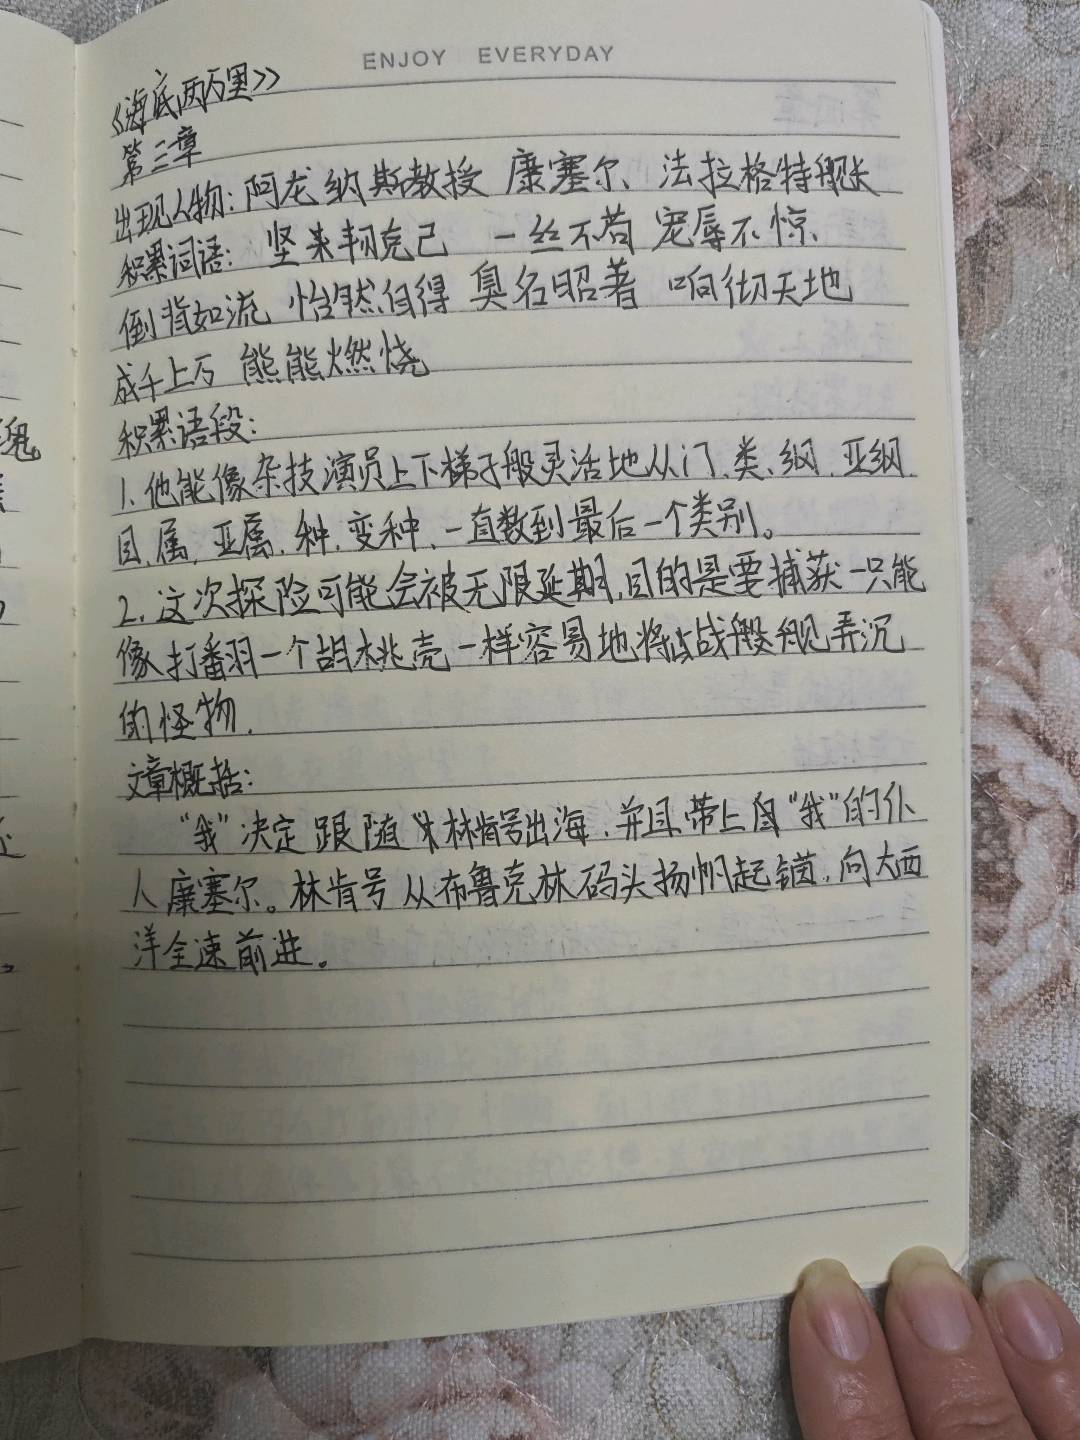 ENJOY EVERYDAY
《海底两万里》
第三章
出现人物：阿龙纳斯教授 康塞尔、法拉格特舰长
积累词语： 坚韧克己 一丝不苟 宠辱不惊、
倒背如流 怡然自得 臭名昭著 响彻天地
成千上万 熊熊燃烧
积累语段：
1.他能像杂技演员上下梯子般灵活地从门、类、纲、亚纲、
目、属、亚属、种、变种、一直数到最后一个类别。
2.这次探险可能会被无限延期,目的是要捕获一只能
像打翻一个胡桃壳一样容易地将战舰弄沉
的怪物.
文章概括：
“我”决定跟随林肯号出海.并且带上“我”的仆
人康塞尔。林肯号从布鲁克林码头扬帆起锚.向大西
洋全速前进。